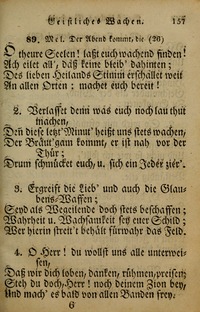 Geistliches Wachen. 157
89. Mel. Der Abend kommt, die (26)
O theure Seelen! laßt euch wachend finden!
Ach eilet all', daß keine bleib' dahinten;
Des lieben Heilands Stimm erschallet weit
An allen Orten; machet euch bereit!
2. Verlasset denn was euch noch lau thut
machen,
Den diese letzt' Minut' heißt uns stets wachen,
Der Bräut'gam kommt, er ist nah vor der
Thür;
Drum schmücket euch, u. sich ein Jeder zier'.
3. Ergreift die Lieb' und auch die Glau-
bens-Waffen;
Seyd als Wegeilende doch stets beschaffen;
Wahrheit u. Wachsamkeit sey euer Schild,
Wer hierin streit't behält fürwahr das Feld.
4. O Herr! du wollst uns alle unterwei-
sen,
Daß wir dich loben, danken, rühmen, preisen;
Steh du doch, Herr! noch deinem Zion bey,
Und mach' es bald von allen Banden frey.
6